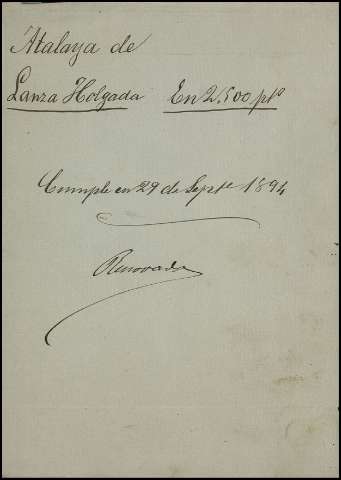 Atalaya de
Lanza Holgada En 2.500 ptˢ
Cumple en 29 de Septe 1894
Renovada